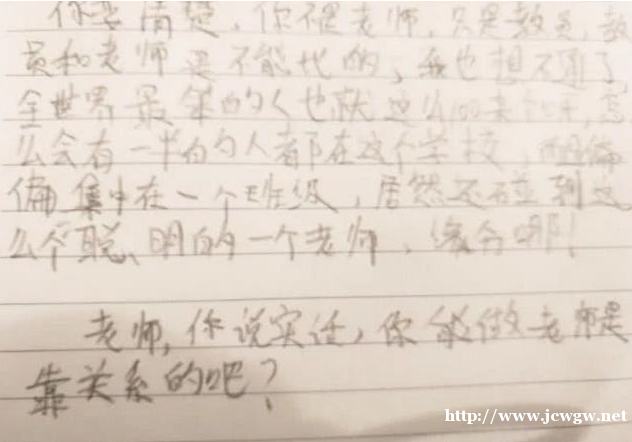 你要清楚，你不是老师，只是教员，教
员和老师是不能比的，我也想不通了，
全世界最笨的人也就这么100来个吧，怎
么会有一半的人都在这个学校，而且偏
偏集中在一个班级，居然还碰到这
么个聪明的一个老师，缘分哪！
老师，你说实话，你能做老师是
靠关系的吧？
http://www.jcwgw.net